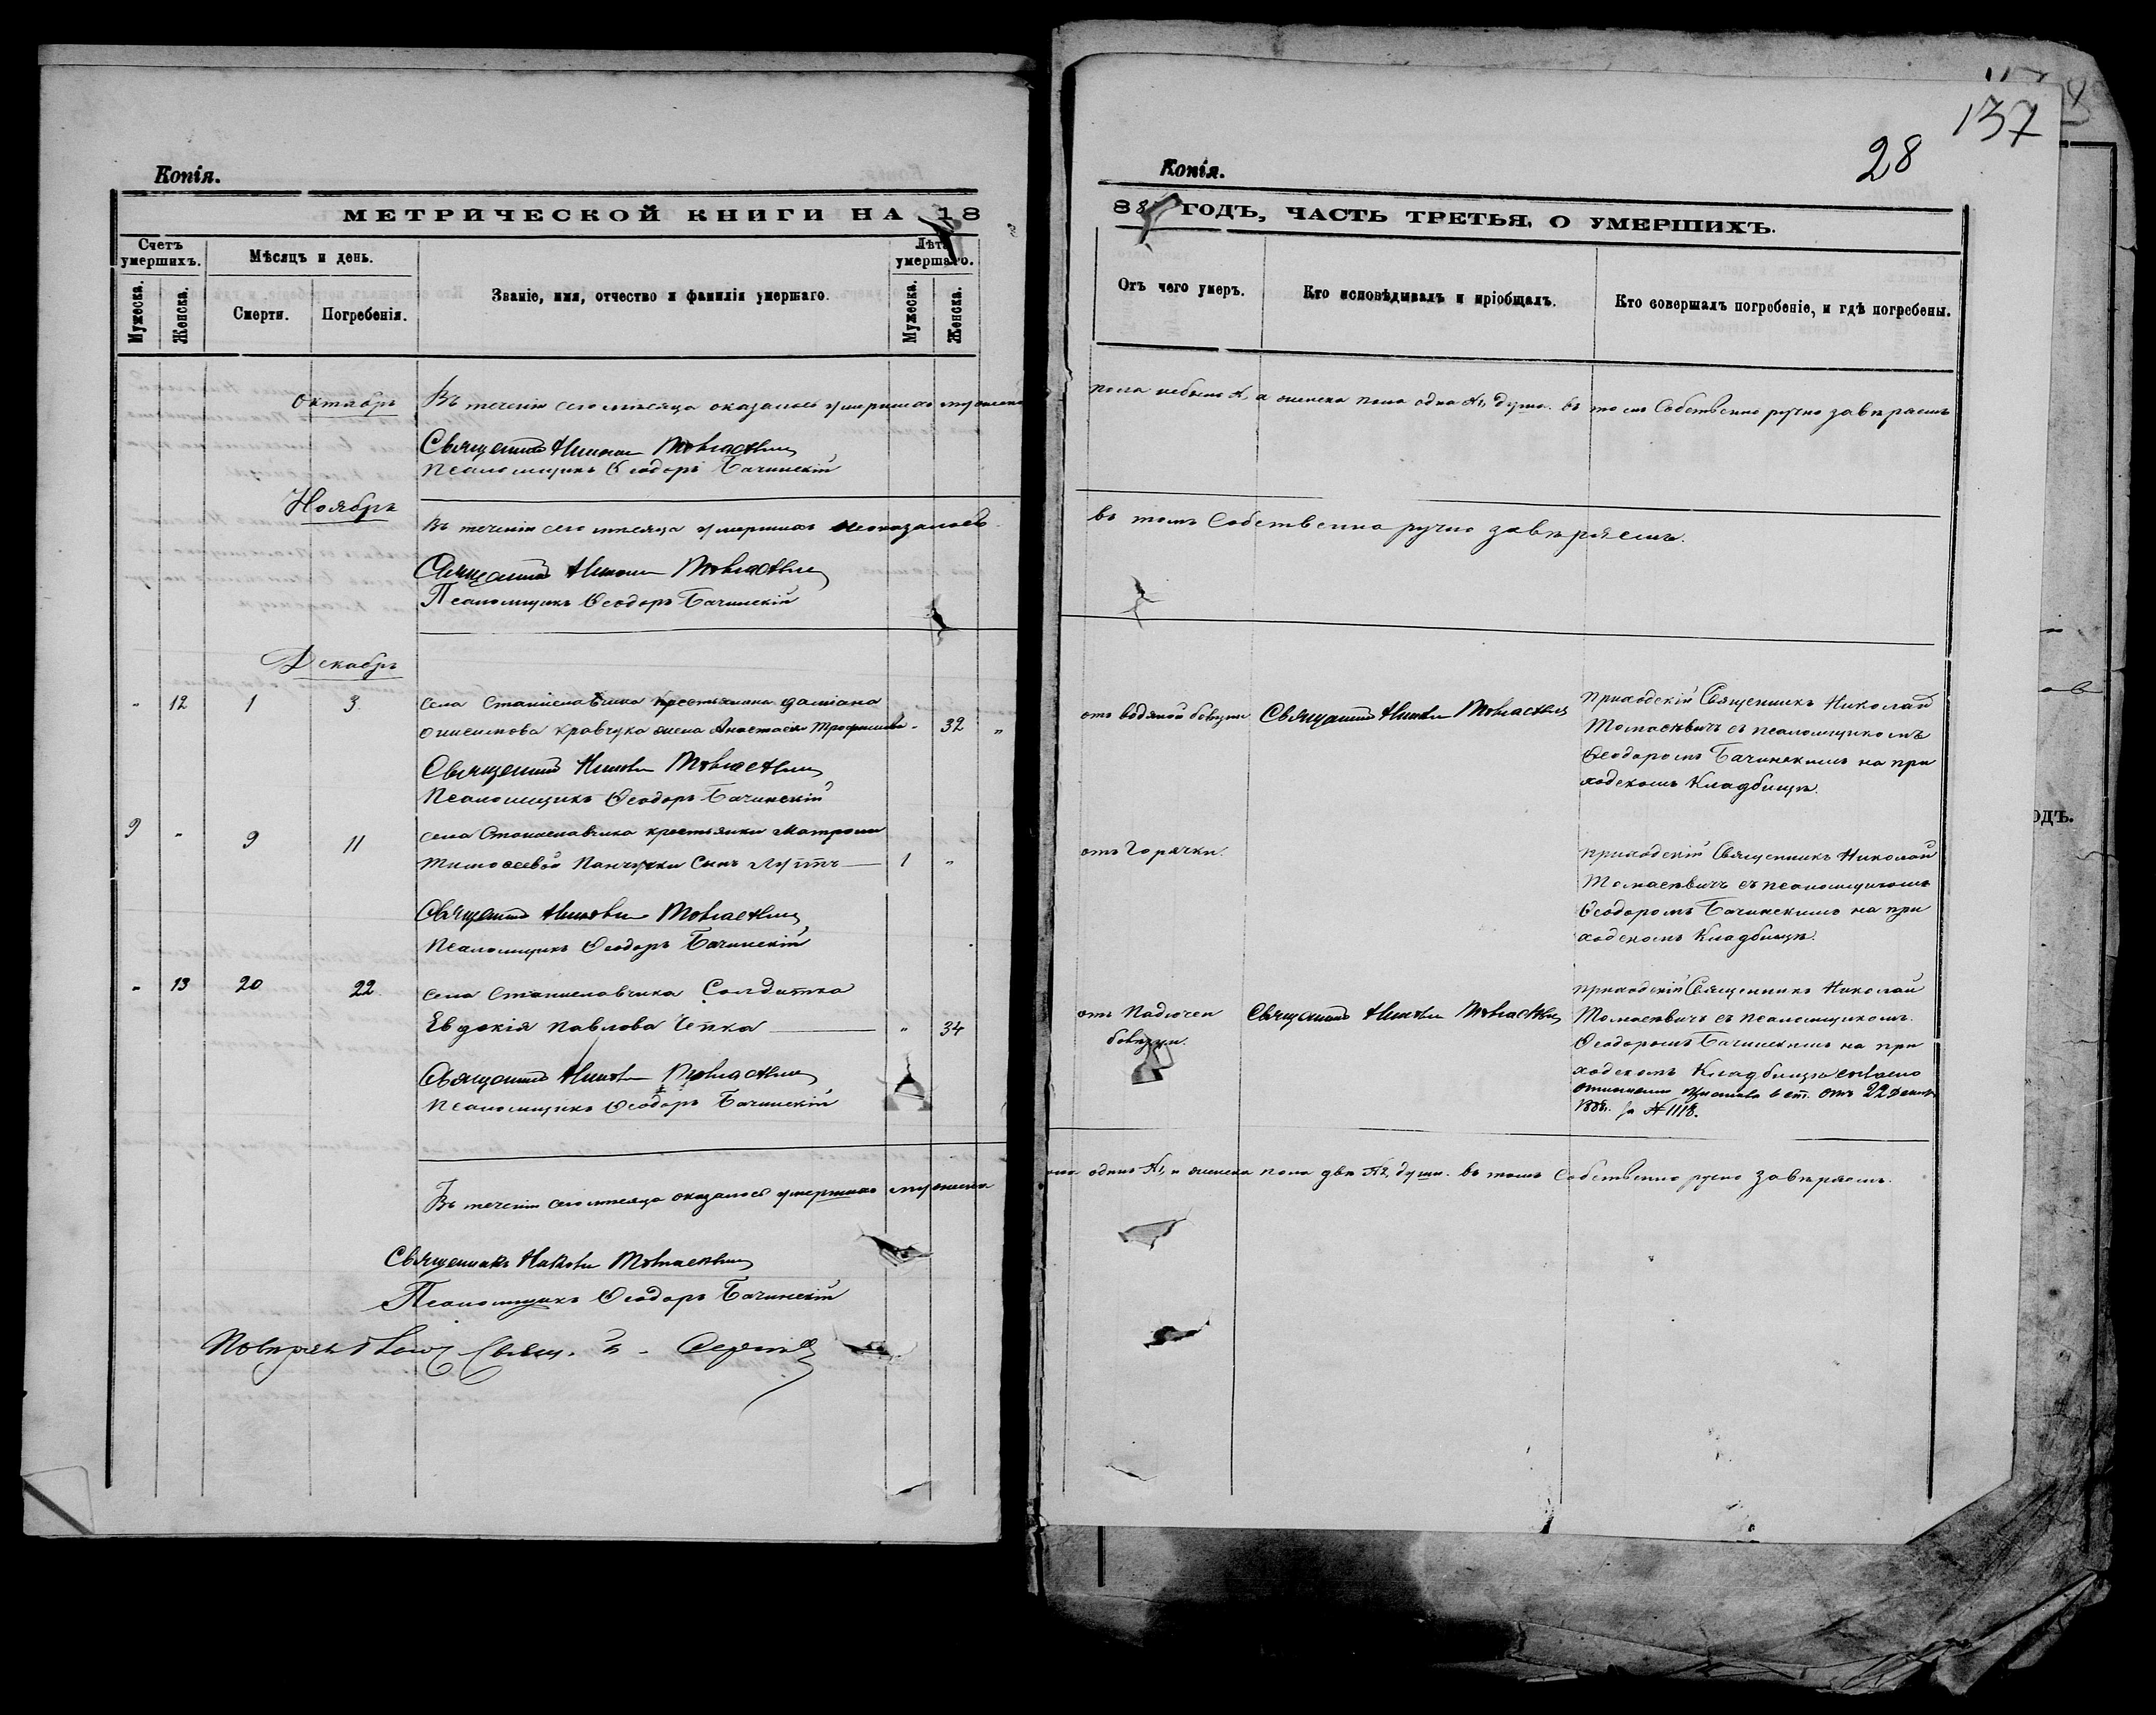 137
28
Копія.
МЕТРИЧЕСКОЙ КНИГИ НА 18
Счетъ умершихъ.
Мужеска.
Женска.
Мѣсяцъ и день.
Смерти.
Погребенія.
Званіе, имя, отчество и фамилія умершаго.
Лѣта умершаго.
Мужеска.
Женска.
Октябрь
Въ теченіи сего мѣсяца оказалось умершихъ мужеска
Священникъ Николай
Псаломщикъ Ѳеодоръ Бачинскій
Ноябрь
Въ теченіи сего мѣсяца умершихъ неоказалось
Священникъ Николай
Псаломщикъ Ѳеодоръ Бачинскій
Декабрь
12 1 3 села Станиславчика крестьянина Даміана
Онисимова Кравчука жена Анастасія Трофимова 32
Священникъ Николай
Псаломщикъ Ѳеодоръ Бачинскій
9 9 11 села Станиславчика крестьянки Матроны
Тимоѳеевой сынъ 1
Священникъ Николай
Псаломщикъ Ѳеодоръ Бачинскій
13 20 22 села Станиславчика Солдатка
Евдокія Павлова 34
Священникъ Николай
Псаломщикъ Ѳеодоръ Бачинскій
Въ теченіи сего мѣсяца оказалось умершихъ мужеска
Священникъ Николай
Псаломщикъ Ѳеодоръ Бачинскій
Копія.
88 ГОДЪ, ЧАСТЬ ТРЕТЬЯ, О УМЕРШИХЪ.
Отъ чего умеръ.
Кто исповѣдывалъ и пріобщалъ.
Кто совершалъ погребеніе, и гдѣ погребены.
пола небыло, а женска пола одна №1, душа. въ томъ Собственно ручно завѣряемъ
въ томъ Собственно ручно завѣряемъ.
отъ водяной болѣзни
Священникъ Николай
приходскій Священникъ Николай
съ псаломщикомъ
Ѳеодоромъ Бачинскимъ на при
ходскомъ Кладбищѣ.
отъ Горячки.
приходскій Священникъ Николай
съ псаломщикомъ
Ѳеодоромъ Бачинскимъ на при
ходскомъ Кладбищѣ.
отъ Падучей
болѣзни.
Священникъ Николай
приходскій Священникъ Николай
съ псаломщикомъ
Ѳеодоромъ Бачинскимъ на при
ходскомъ Кладбищѣ согласно
отношенію отъ 22 Декабр
за № 1118.
одинъ №1, и женска пола двѣ №2, души. въ томъ Собственно ручно завѣряемъ.
ОДЪ.